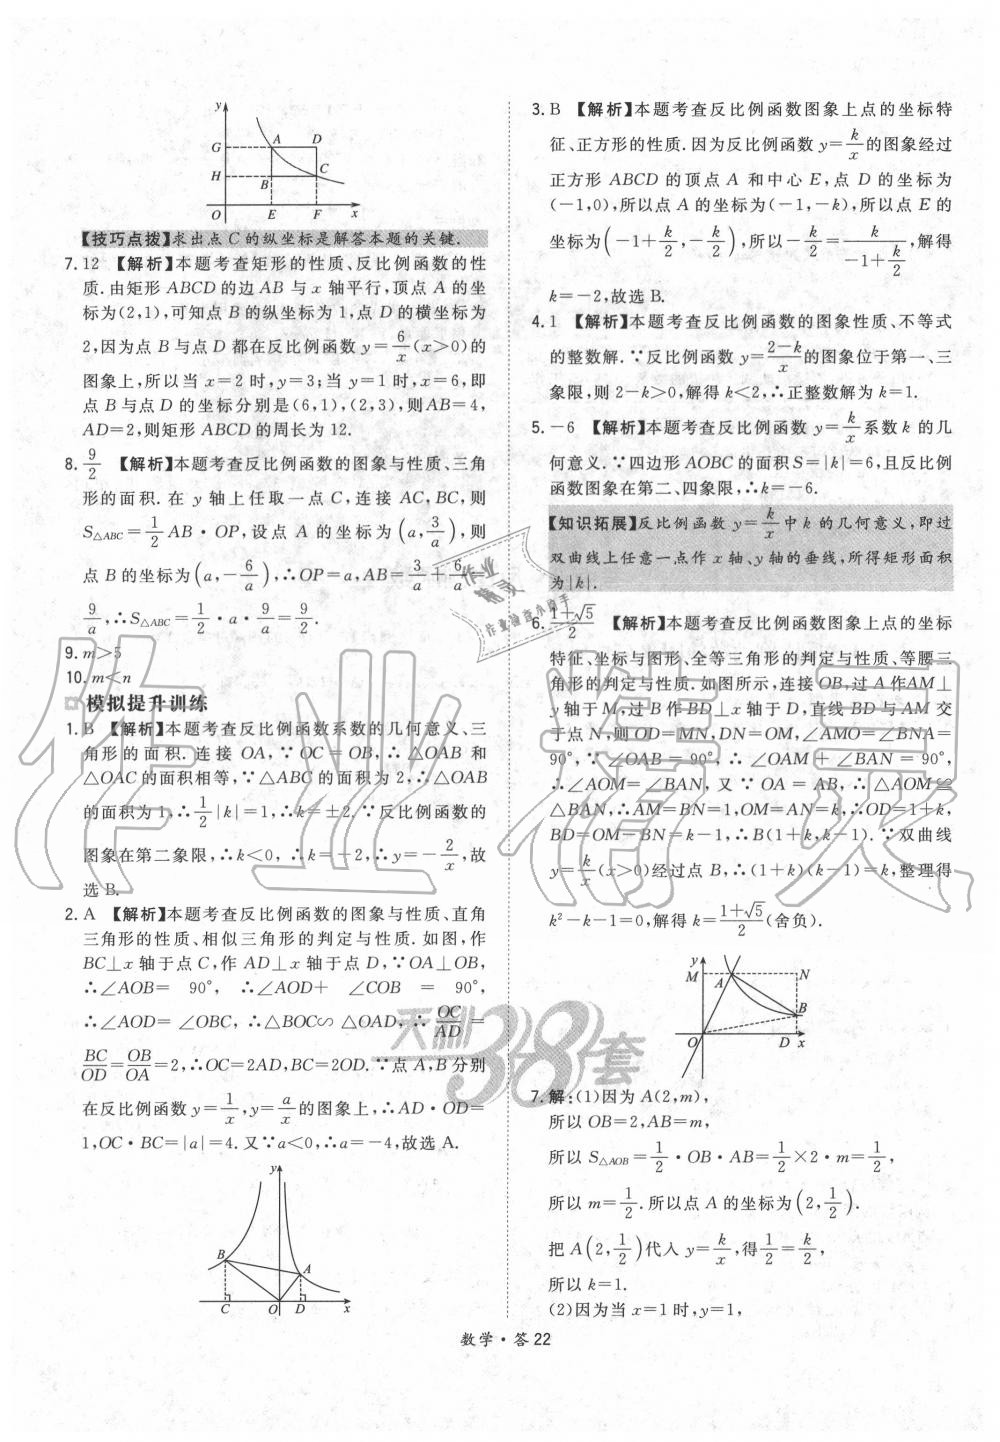 y
G
A
D
H
B
C
O
E
F
x
【技巧点拨】求出点 C 的纵坐标是解答本题的关键.
7. 12 【解析】本题考查矩形的性质、反比例函数的性
质.由矩形 ABCD 的边 AB 与 x 轴平行,顶点 A 的坐
标为(2,1),可知点 B 的纵坐标为 1,点 D 的横坐标为
2,因为点 B 与点 D 都在反比例函数 y=6/x(x>0)的
图象上,所以当 x=2 时,y=3;当 y=1 时,x=6,即
点 B 与点 D 的坐标分别是(6,1),(2,3),则AB=4,
AD=2,则矩形 ABCD 的周长为 12.
8. 9/2 【解析】本题考查反比例函数的图象与性质、三角
形的面积.在 y 轴上任取一点 C,连接 AC,BC,则
S△ABC=1/2 AB·OP,设点 A 的坐标为(a,3/a),则
点 B 的坐标为(a,-6/a),∴OP=a,AB=3/a+6/a=
9/a,∴S△ABC=1/2·a·9/a=9/2.
9. m>5
10. m<n
模拟提升训练
1. B 【解析】本题考查反比例函数系数的几何意义、三
角形的面积.连接 OA,∵OC=OB,∴△OAB 和
△OAC 的面积相等,∵△ABC 的面积为 2,∴△OAB
的面积为 1,∴1/2|k|=1,∴k=±2.∵反比例函数的
图象在第二象限,∴k<0,∴k=-2,∴y=-2/x,故
选 B.
2. A 【解析】本题考查反比例函数的图象与性质、直角
三角形的性质、相似三角形的判定与性质.如图,作
BC⊥x 轴于点 C,作 AD⊥x 轴于点 D,∵OA⊥OB,
∴∠AOB= 90°,∴∠AOD+ ∠COB = 90°,
∴∠AOD= ∠OBC,∴△BOC∽ △OAD,∴ OC/AD =
BC/OD=OB/OA=2,∴OC=2AD,BC=2OD.∵点 A,B 分别
在反比例函数 y=1/x,y=a/x的图象上,∴AD·OD=
1,OC·BC=|a|=4.又∵a<0,∴a=-4,故选 A.
y
B
A
C
O
D
x
3. B 【解析】本题考查反比例函数图象上点的坐标特
征、正方形的性质.因为反比例函数 y=k/x的图象经过
正方形 ABCD 的顶点 A 和中心 E,点 D 的坐标为
(-1,0),所以点 A 的坐标为(-1,-k),所以点 E 的
坐标为(-1+k/2,-k/2),所以-k/2=k/(-1+k/2),解得
k=-2,故选 B.
4. 1 【解析】本题考查反比例函数的图象性质、不等式
的整数解.∵反比例函数 y=(2-k)/x的图象位于第一、三
象限,则 2-k>0,解得 k<2,∴正整数解为 k=1.
5. -6 【解析】本题考查反比例函数 y=k/x系数 k 的几
何意义.∵四边形 AOBC 的面积 S=|k|=6,且反比例
函数图象在第二、四象限,∴k=-6.
【知识拓展】反比例函数 y=k/x中 k 的几何意义,即过
双曲线上任意一点作 x 轴、y 轴的垂线,所得矩形面积
为|k|.
6. (1+√5)/2 【解析】本题考查反比例函数图象上点的坐标
特征、坐标与图形、全等三角形的判定与性质、等腰三
角形的判定与性质.如图所示,连接 OB,过 A 作AM⊥
y 轴于 M,过 B 作BD⊥x 轴于 D,直线 BD 与 AM 交
于点 N,则 OD=MN,DN=OM,∠AMO=∠BNA=
90°,∵∠OAB = 90°,∴∠OAM + ∠BAN = 90°,
∴∠AOM=∠BAN,又∵OA = AB,∴△AOM≌
△BAN,∴AM=BN=1,OM=AN=k,∴OD=1+k,
BD=OM-BN=k-1,∴B(1+k,k-1).∵双曲线
y=k/x(x>0)经过点 B,∴(1+k)(k-1)=k,整理得
k²-k-1=0,解得 k=(1+√5)/2(舍负).
y
M
A
N
B
O
D
x
7. 解:(1)因为 A(2,m),
所以 OB=2,AB=m,
所以 S△AOB=1/2·OB·AB=1/2×2·m=1/2,
所以 m=1/2.所以点 A 的坐标为(2,1/2).
把 A(2,1/2)代入 y=k/x,得1/2=k/2,
所以 k=1.
(2)因为当 x=1 时,y=1,
数学·答 22
作业精灵
天利38套